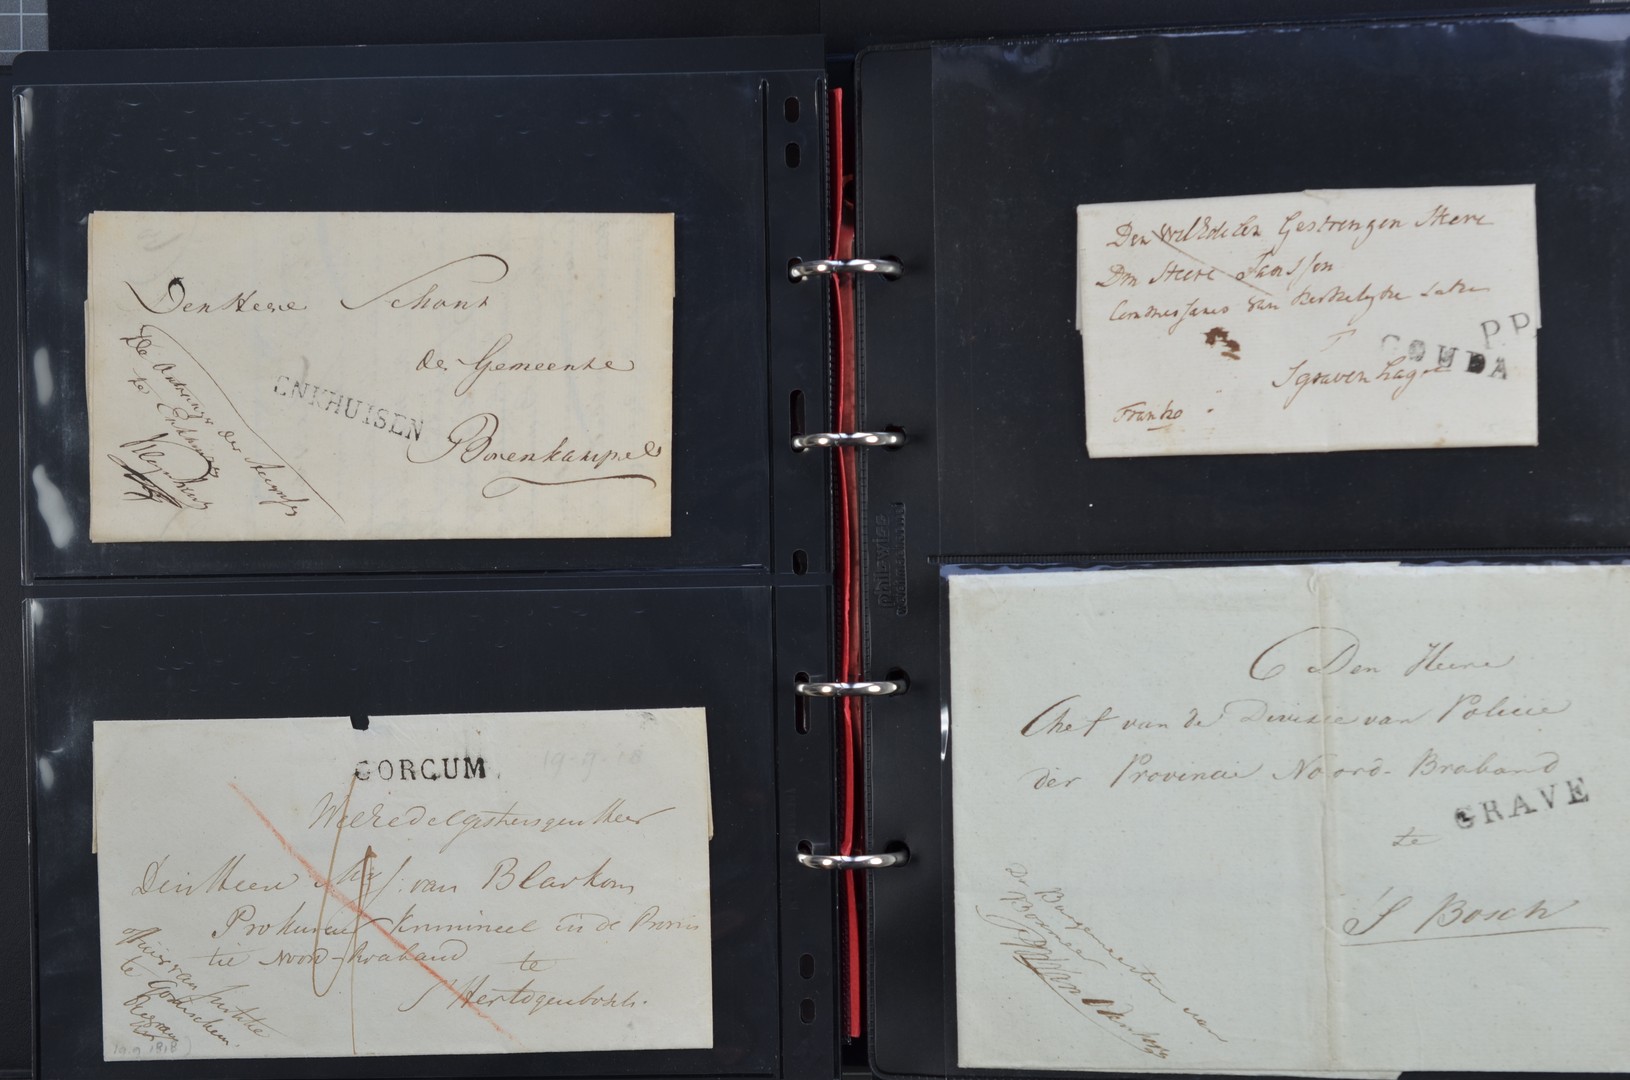 Den Heere Schout
der Gemeente
ENKHUISEN
Bovenkarspel
De Ontvanger der
te Enkhuizen
GORCUM
19-9-18
WelEdelgestrengen Heer
Den Heere Mr J: van Blarkom
Prokureur Krimineel in de Provin
tie Noord-Braband te
S Hertogenbosch.
Huis van Justitie
te Gorinchem.
19.9.1818
Den WelEdelen Gestrengen Heere
Den Heere Janssen
Commissaris van Kerkelyke Zaken
P.P.
GOUDA
Sgravenhage
Franko
philswiss
Den Heere
Chef van de Divisie van Policie
der Provincie Noord-Braband
GRAVE
te
'S Bosch
De Burgemeester van